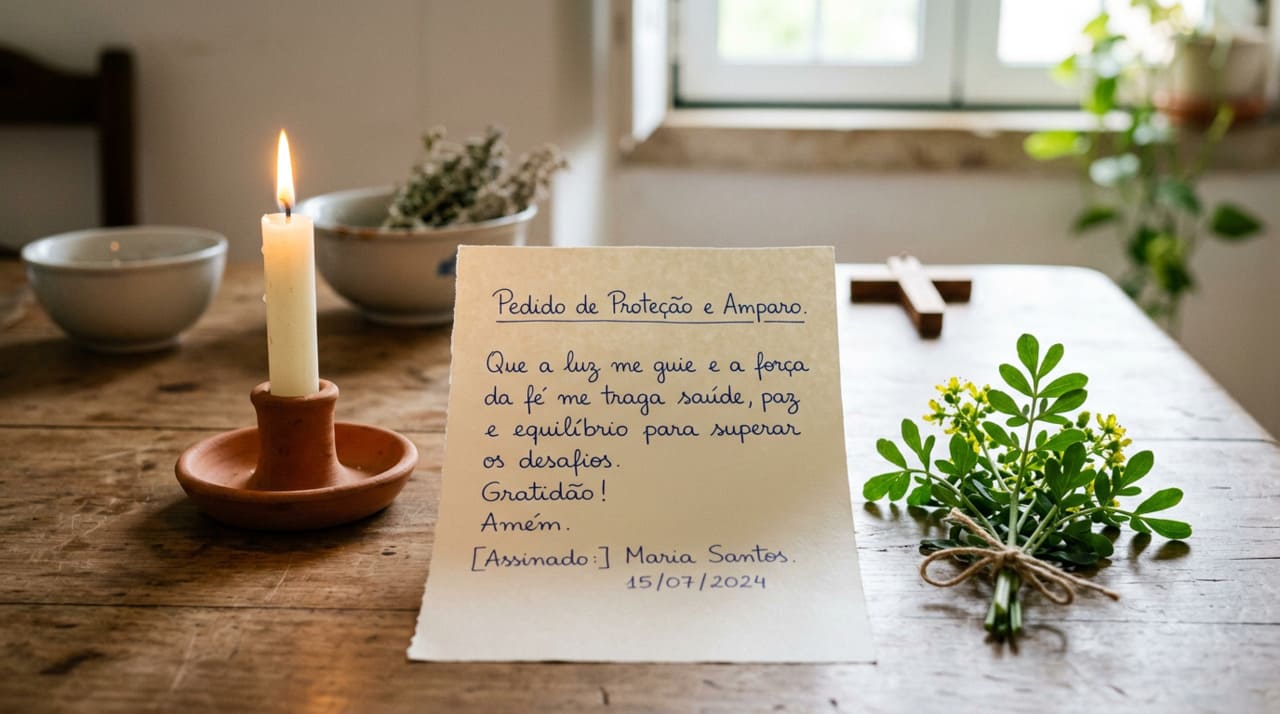 Pedido de Proteção e Amparo.
Que a luz me guie e a força
da fé me traga saúde, paz
e equilíbrio para superar
os desafios.
Gratidão!
Amém.
[Assinado:] Maria Santos.
15/07/2024